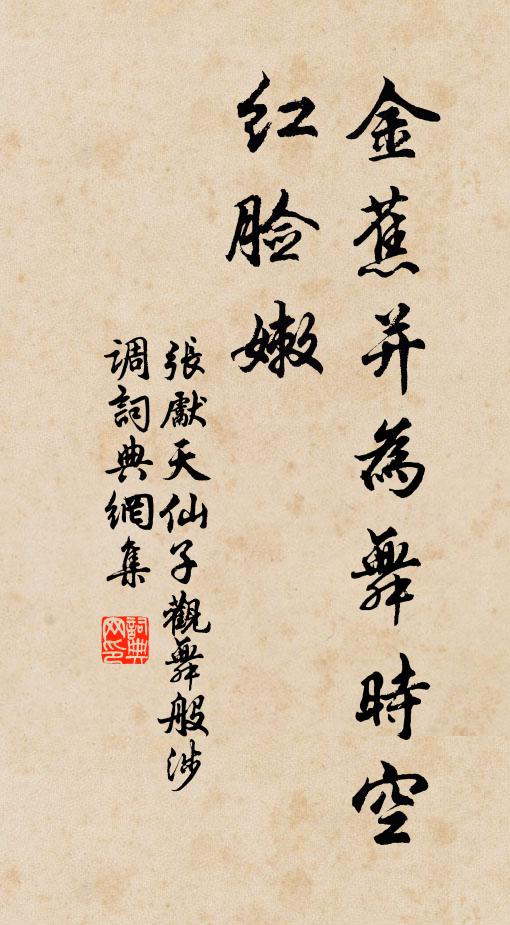 金蕉并為舞時空
红脸嫩
張獻天仙子觀舞般涉
调詞典網集
詞典
网印